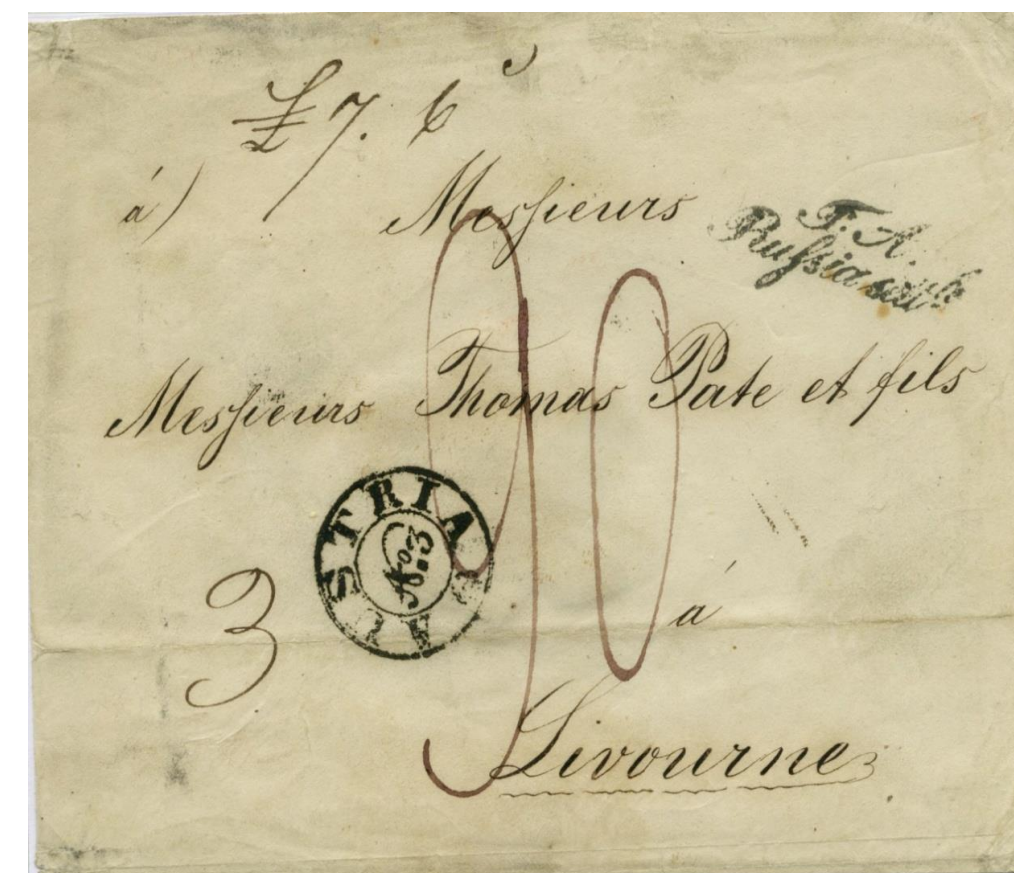 £7. 6
á)
Messieurs
F. A.
Russia
Messieurs Thomas Pate et fils
90
AUSTRIA
3
á
Livourne